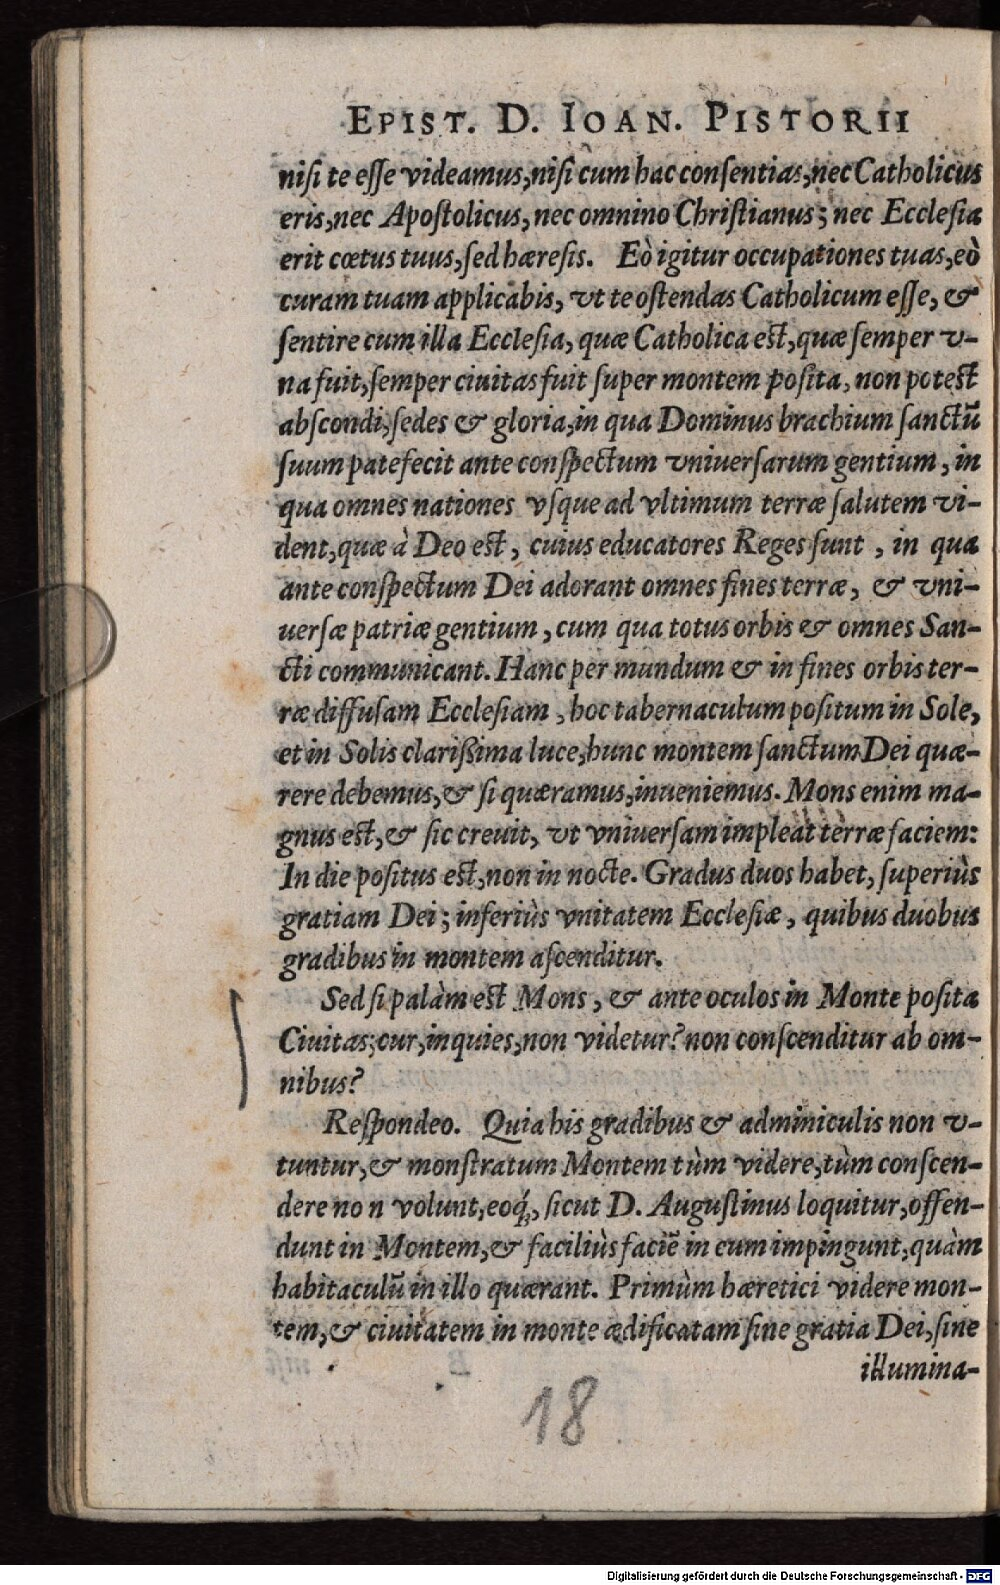 EPIST. D. IOAN. PISTORII
niſi te eſſe videamus, niſi cum hac conſentias, nec Catholicus
eris, nec Apoſtolicus, nec omnino Chriſtianus; nec Eccleſia
erit cœtus tuus, ſed hæreſis. Eò igitur occupationes tuas, eò
curam tuam applicabis, vt te oſtendas Catholicum eſſe, &
ſentire cum illa Eccleſia, quæ Catholica eſt, quæ ſemper v-
na fuit, ſemper ciuitas fuit ſuper montem poſita, non poteſt
abſcondi, ſedes & gloria, in qua Dominus brachium ſanctũ
ſuum patefecit ante conſpectum vniuerſarum gentium, in
qua omnes nationes vſque ad vltimum terræ ſalutem vi-
dent, quæ à Deo eſt, cuius educatores Reges ſunt, in qua
ante conſpectum Dei adorant omnes fines terræ, & vni-
uerſæ patriæ gentium, cum qua totus orbis & omnes San-
cti communicant. Hanc per mundum & in fines orbis ter-
ræ diffuſam Eccleſiam, hoc tabernaculum poſitum in Sole,
et in Solis clarißima luce, hunc montem ſanctum Dei quæ-
rere debemus, & ſi quæramus, inueniemus. Mons enim ma-
gnus eſt, & ſic creuit, vt vniuerſam impleat terræ faciem:
In die poſitus eſt, non in nocte. Gradus duos habet, ſuperiùs
gratiam Dei; inferiùs vnitatem Eccleſiæ, quibus duobus
gradibus in montem aſcenditur.
Sed ſi palàm eſt Mons, & ante oculos in Monte poſita
Ciuitas; cur, inquies, non videtur? non conſcenditur ab om-
nibus?
Reſpondeo. Quia his gradibus & adminiculis non v-
tuntur, & monſtratum Montem tùm videre, tùm conſcen-
dere no n volunt, eoq́;, ſicut D. Auguſtinus loquitur, offen-
dunt in Montem, & faciliùs faciẽ in eum impingunt, quàm
habitaculũ in illo quærant. Primùm hæretici videre mon-
tem, & ciuitatem in monte ædificatam ſine gratia Dei, ſine
illumina-
18
Digitalisierung gefördert durch die Deutsche Forschungsgemeinschaft - DFG